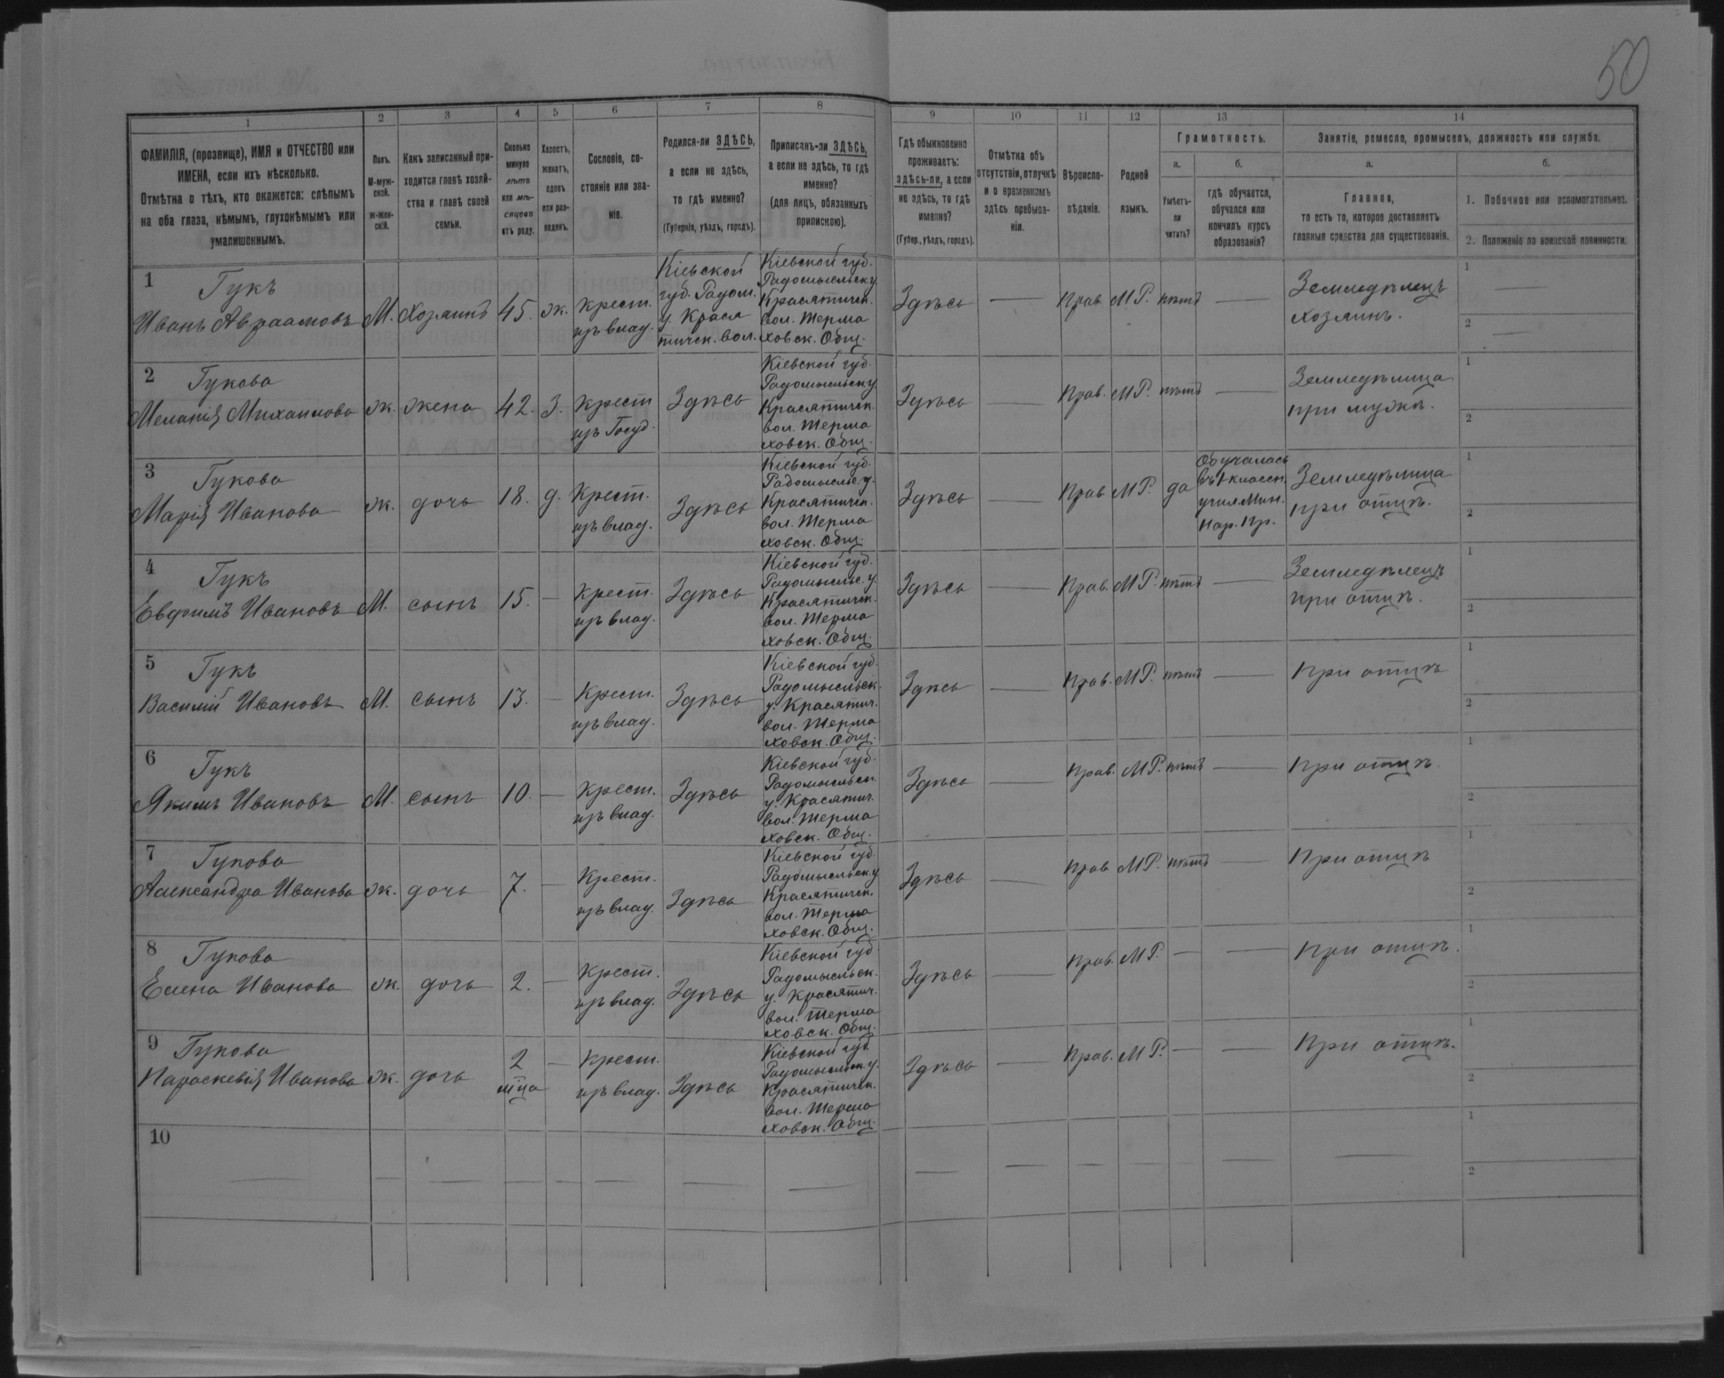 50
1 2 3 4 5 6 7 8 9 10 11 12 13 14
ФАМИЛІЯ, (прозвище), ИМЯ и ОТЧЕСТВО или
ИМЕНА, если ихъ нѣсколько.
Отмѣтка о тѣхъ, кто окажется: слѣпымъ
на оба глаза, нѣмымъ, глухонѣмымъ или
умалишеннымъ.
Полъ.
М-муж-
ской.
Ж-жен-
скій.
Какъ записанный при-
ходится главѣ хозяй-
ства и главѣ своей
семьи.
Сколько
минуло
лѣтъ
или мѣ-
сяцевъ
отъ роду.
Холостъ,
женатъ,
вдовъ
или раз-
веденъ.
Сословіе, со-
стояніе или зва-
ніе.
Родился-ли ЗДѢСЬ,
а если не здѣсь,
то гдѣ именно?
(Губернія, уѣздъ, городъ).
Приписанъ-ли ЗДѢСЬ,
а если не здѣсь, то гдѣ
именно?
(для лицъ, обязанныхъ
припискою).
Гдѣ обыкновенно
проживаетъ:
здѣсь-ли, а если
не здѣсь, то гдѣ
именно?
(Губер., уѣздъ, городъ).
Отмѣтка объ
отсутствіи, отлучкѣ
и о временномъ
здѣсь пребыва-
ніи.
Вѣроиспо-
вѣданіе.
Родной
языкъ.
Грамотность.
а.
Умѣетъ-
ли
читать?
б.
гдѣ обучается,
обучался или
кончилъ курсъ
образованія?
Занятіе, ремесло, промыселъ, должность или служба.
а.
Главное,
то есть то, которое доставляетъ
главныя средства для существованія.
б.
1. Побочное или вспомогательное.
2. Положеніе по воинской повинности.
1 Гукъ
Иванъ Авраамовъ М. хозяинъ 45. ж. крест.
изъ влад.
Кіевской
губ. Радом.
у Крася
тичск. вол.
Кіевской губ.
Радомысльск у
Красятичск.
вол. Терма
ховск. Общ.
Здѣсь — Прав М.Р. нѣтъ — Земледѣлецъ
хозяинъ.
1 —
2 —
2 Гукова
Меланія Михаилова ж. жена 42. З. крест
изъ Госуд.
Здѣсь
Кіевской губ.
Радомысльск у
Красятичск.
вол. Терма
ховск. Общ.
Здѣсь — Прав. М.Р. нѣтъ — Земледѣлица
при мужѣ.
1
2
3 Гукова
Марія Иванова ж. дочь 18. д. Крест.
изъ влад.
Здѣсь
Кіевской губ.
Радомысл. у.
Красятичск.
вол. Терма
ховск. Общ.
Здѣсь — Прав М.Р. да
Обучалась
въ 1 классн.
учил. Мин.
Нар. Пр.
Земледѣлица
при отцѣ.
1
2
4 Гукъ
Евфимъ Ивановъ М. сынъ 15. — крест.
изъ влад.
Здѣсь
Кіевской губ.
Радомысл. у
Красятичск.
вол. Терма
ховск. Общ.
Здѣсь — Прав. М.Р. нѣтъ — Земледѣлецъ
при отцѣ.
1
2
5 Гукъ
Василій Ивановъ М. сынъ 13. — Крест.
изъ влад.
Здѣсь
Кіевской губ.
Радомысльск.
у. Красятич.
вол. Терма
ховск. Общ.
Здѣсь — Прав. М.Р. нѣтъ — при отцѣ
1
2
6 Гукъ
Якимъ Ивановъ М. сынъ 10. — Крест.
изъ влад.
Здѣсь
Кіевской губ.
Радомысльск
у. Красятич.
вол. Терма
ховск. Общ.
Здѣсь — Прав. М.Р. нѣтъ — при отцѣ.
1
2
7 Гукова
Александра Иванова ж. дочь 7. — Крест.
изъ влад.
Здѣсь
Кіевской губ
Радомысльск у
Красятичск.
вол. Терма
ховск. Общ.
Здѣсь — Прав М.Р. нѣтъ — При отцѣ
1
2
8 Гукова
Елена Иванова ж. дочь 2. — Крест.
изъ влад.
Здѣсь
Кіевской губ
Радомысльск.
у. Красятич.
вол. Терма
ховск. Общ.
Здѣсь — Прав М.Р. — — При отцѣ.
1
2
9 Гукова
Параскевія Иванова ж. дочь 2
мца — Крест.
изъ влад.
Здѣсь
Кіевской губ
Радомысльск у.
Красятичск.
вол. Терма
ховск. Общ.
Здѣсь — Прав. М.Р. — — При отцѣ.
1
2
10
— — — — — — — — — — — — — — —
1
2